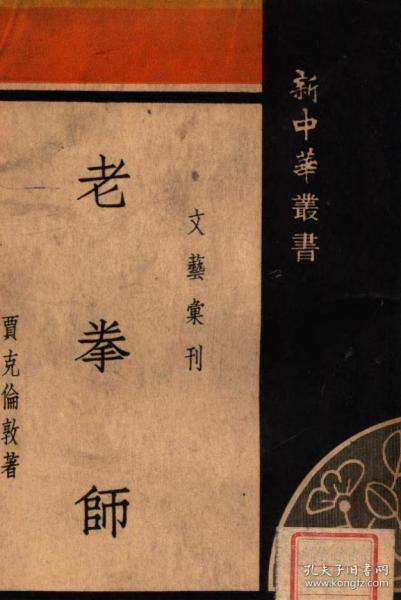 新中華叢書
文藝彙刊
老拳師
賈克倫敦著
孔夫子旧书网
www.kongfz.com